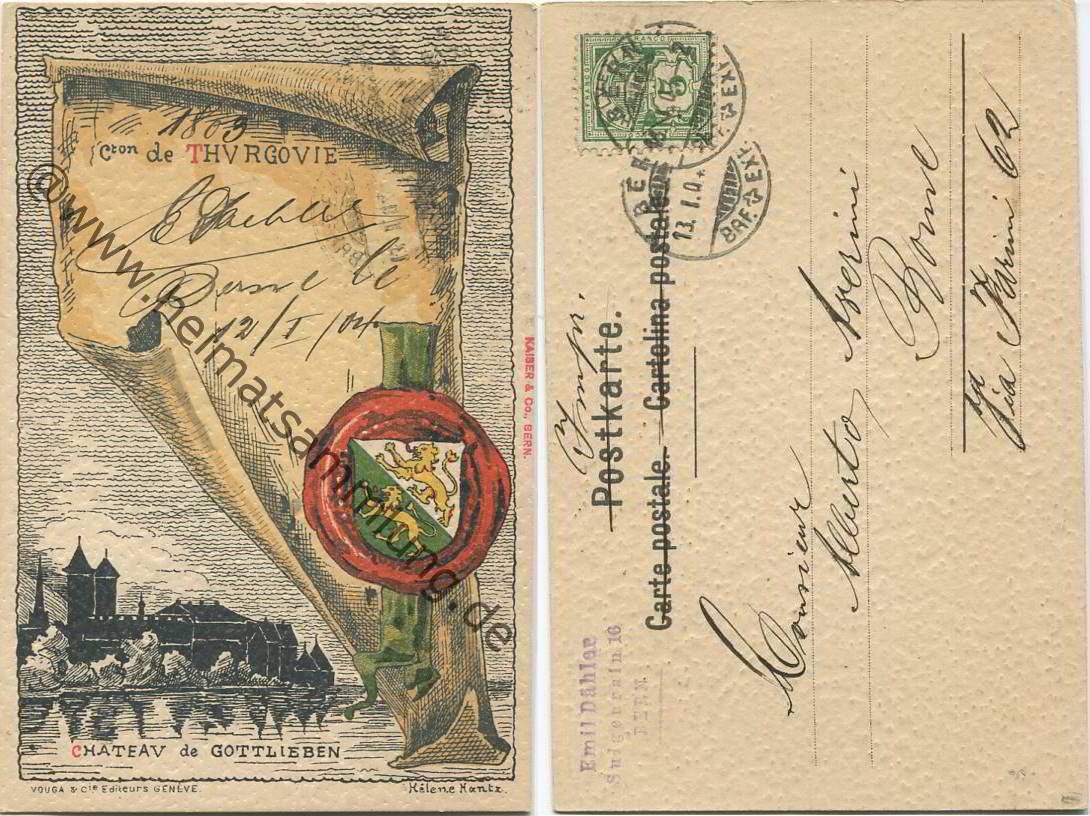 1803
Cton de THVRGOVIE
E Daehler
Berne le
12/I/04
KAISER & Co., BERN.
CHATEAV de GOTTLIEBEN
VOUGA & Cie Editeurs GENÈVE.
Hélène Hantz.
© www.heimatsammlung.de
FRANCO
5
BERN
BRF. EXP.
13. I. 0
BERN
BRF. EXP.
Impr.
Postkarte.
Carte postale. – Cartolina postale.
Monsieur
Alberto
Rome
Via
62
Emil Dähler
Sulgenrain 16
BERN